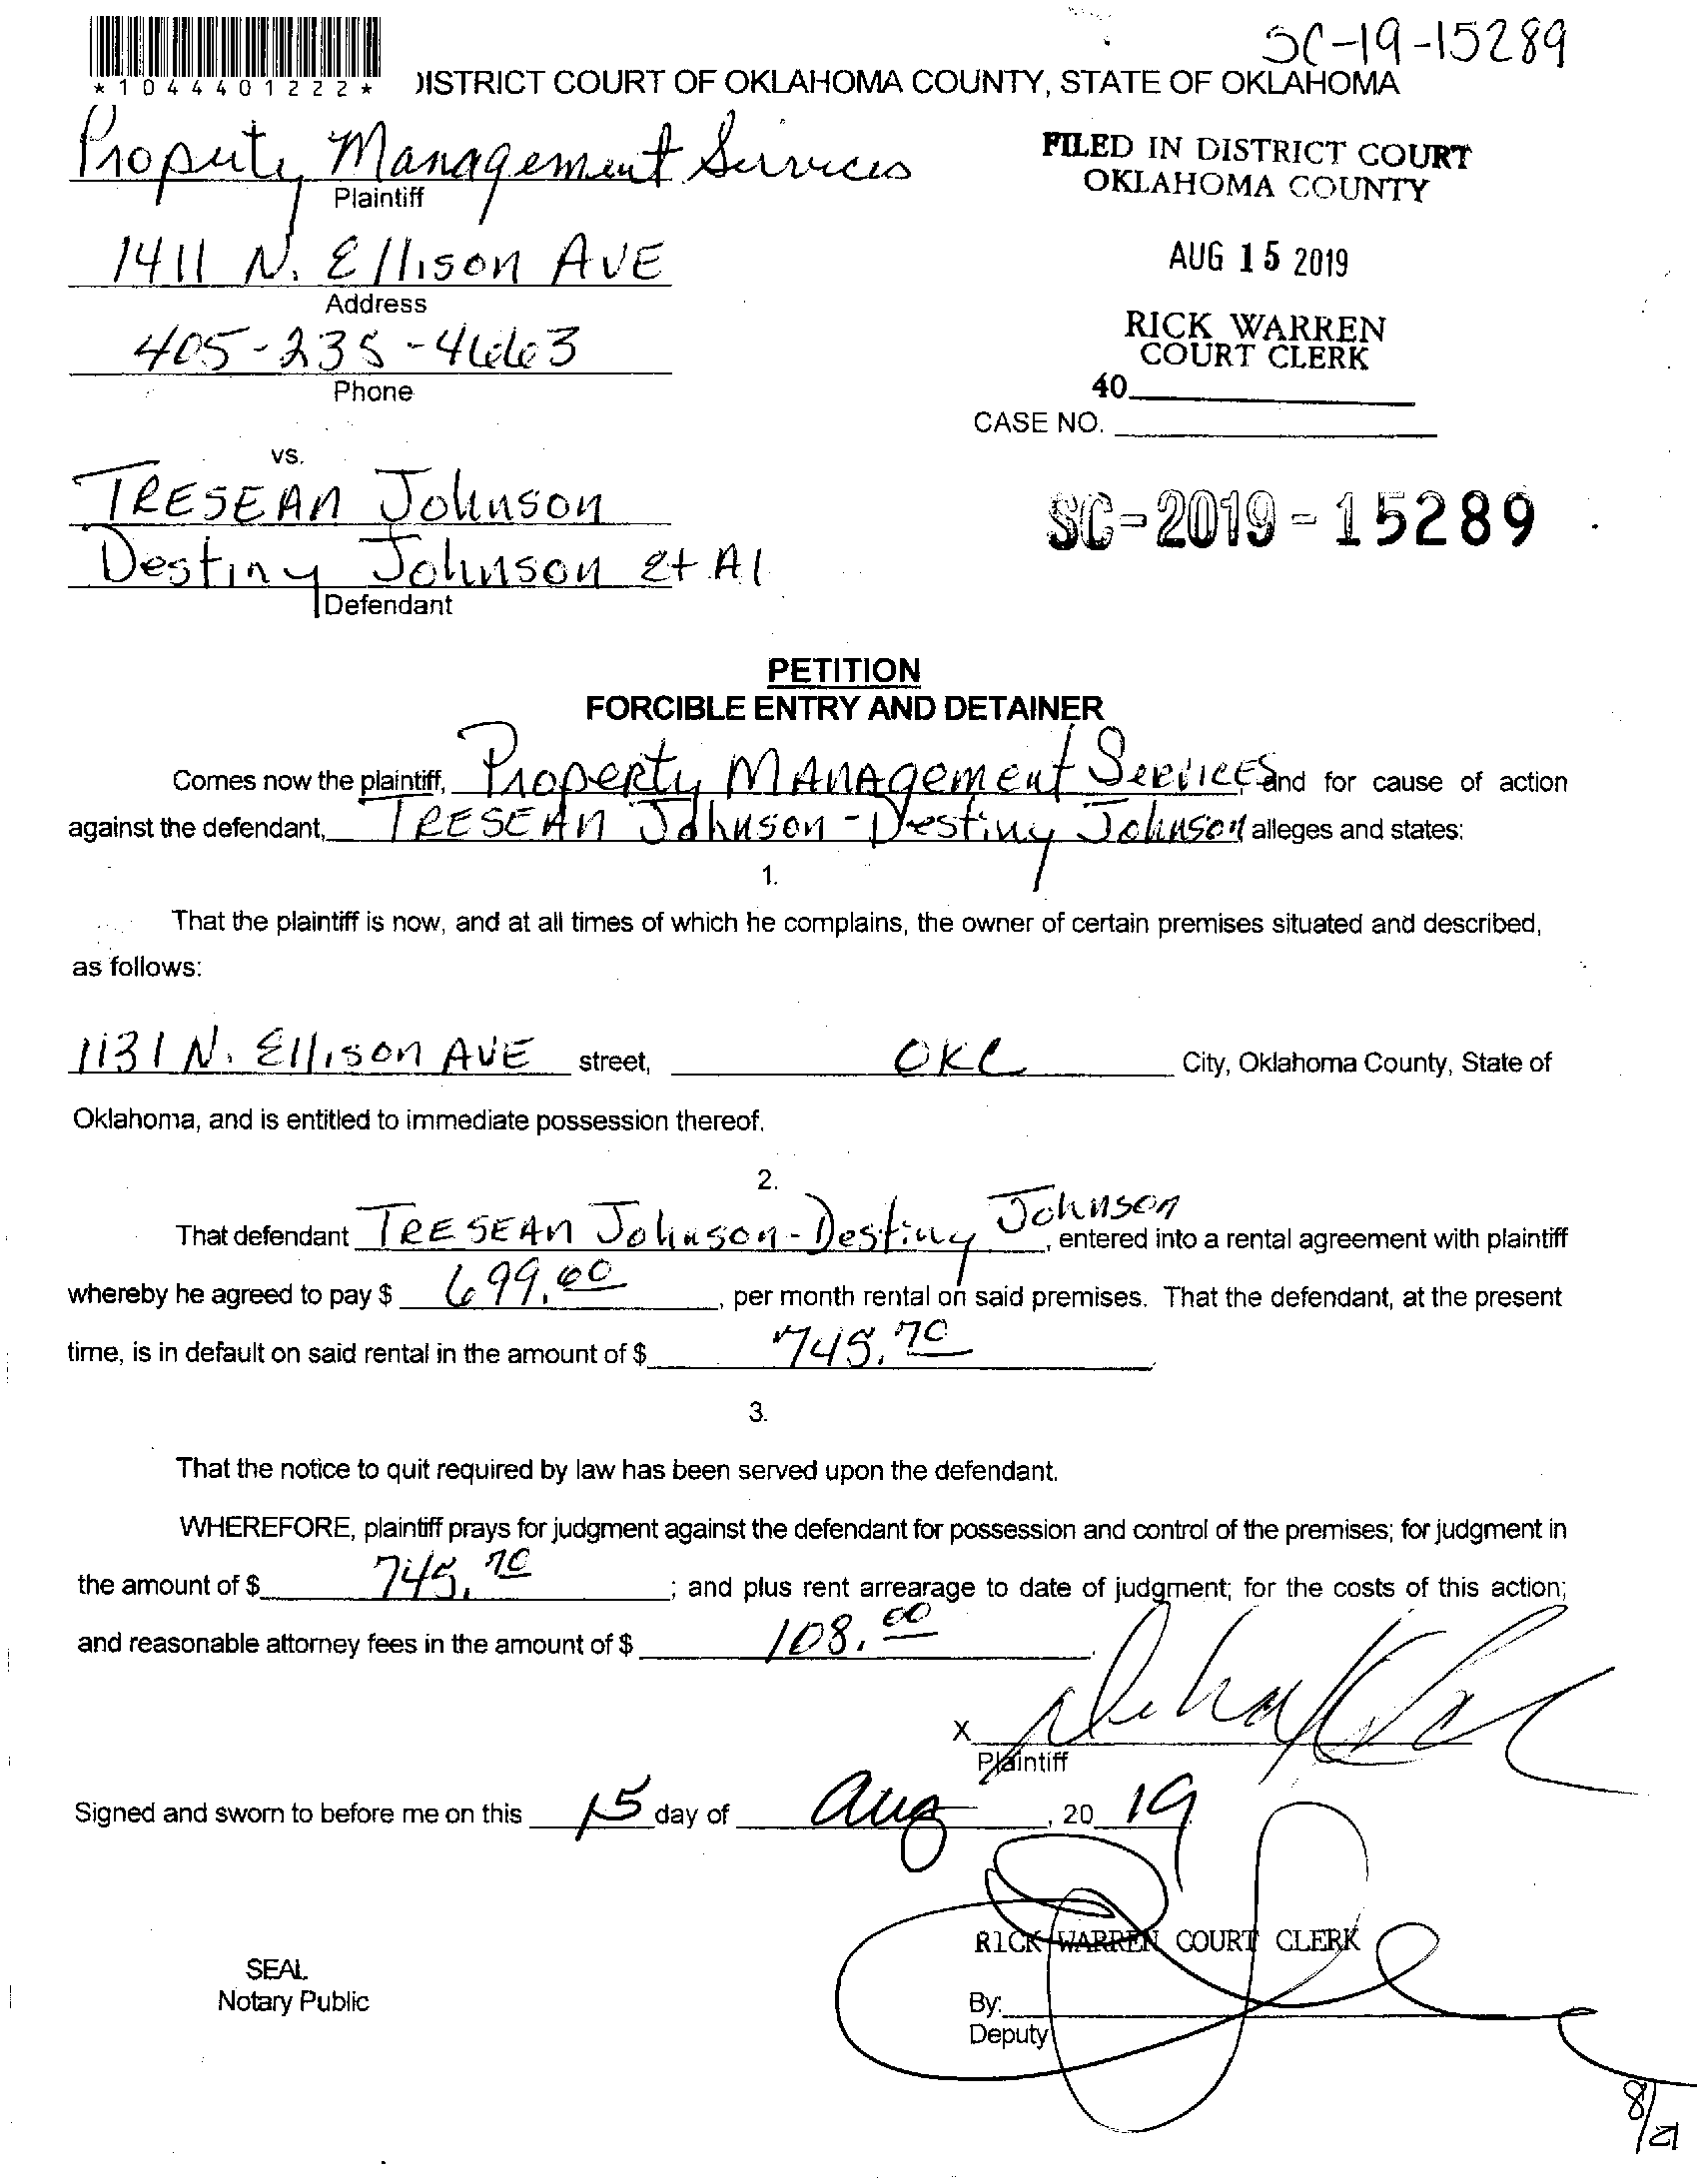 SC-19-15289
*1044401222*
DISTRICT COURT OF OKLAHOMA COUNTY, STATE OF OKLAHOMA
Property Management Services
Plaintiff
FILED IN DISTRICT COURT
OKLAHOMA COUNTY
1411 N. Ellison AVE
Address
AUG 15 2019
405-235-4663
Phone
RICK WARREN
COURT CLERK
40
CASE NO.
vs.
TRESEAN Johnson
Destiny Johnson et Al
Defendant
SC-2019-15289
PETITION
FORCIBLE ENTRY AND DETAINER
Comes now the plaintiff, Property MANAgement Services and for cause of action
against the defendant, TRESEAN Johnson-Destiny Johnson alleges and states:
1.
That the plaintiff is now, and at all times of which he complains, the owner of certain premises situated and described,
as follows:
1131 N. Ellison AVE street, OKC City, Oklahoma County, State of
Oklahoma, and is entitled to immediate possession thereof.
2.
That defendant TRESEAN Johnson-Destiny Johnson, entered into a rental agreement with plaintiff
whereby he agreed to pay $ 699.00, per month rental on said premises. That the defendant, at the present
time, is in default on said rental in the amount of $ 745.70
3.
That the notice to quit required by law has been served upon the defendant.
WHEREFORE, plaintiff prays for judgment against the defendant for possession and control of the premises; for judgment in
the amount of $ 745.70; and plus rent arrearage to date of judgment; for the costs of this action;
and reasonable attorney fees in the amount of $ 108.00.
X
Plaintiff
Signed and sworn to before me on this 15 day of Aug, 20 19.
RICK WARREN COURT CLERK
SEAL
Notary Public
By:
Deputy
8/21